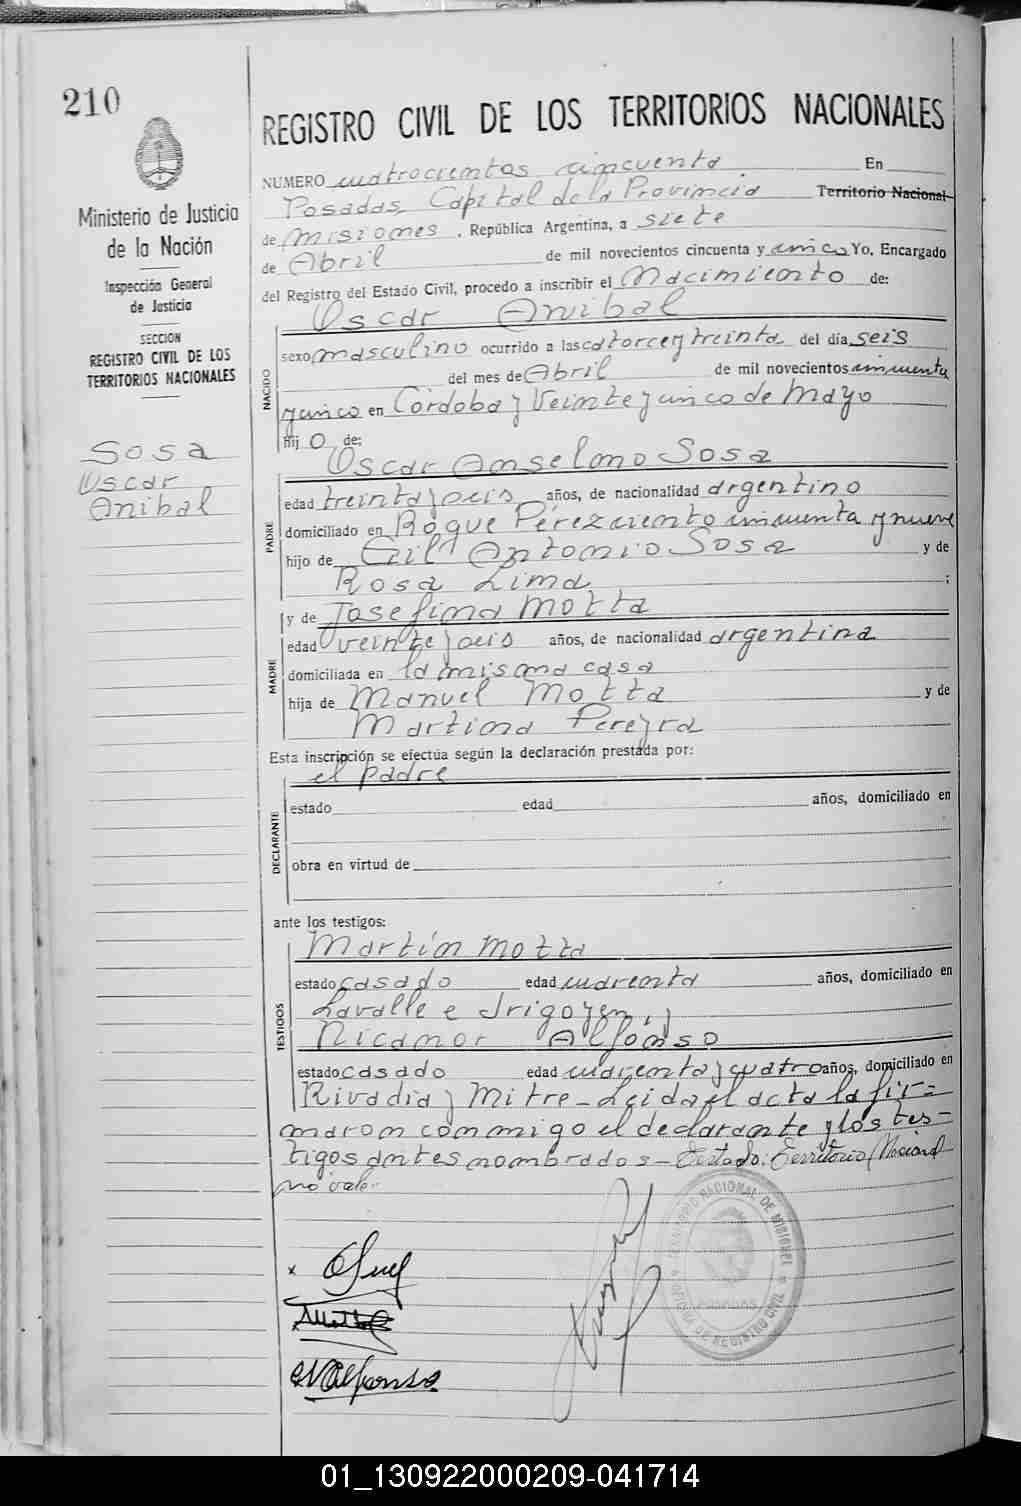 210
REGISTRO CIVIL DE LOS TERRITORIOS NACIONALES
Ministerio de Justicia
de la Nación
Inspección General
de Justicia
SECCION
REGISTRO CIVIL DE LOS
TERRITORIOS NACIONALES
Sosa
Oscar
Anibal
NUMERO cuatrocientos cincuenta En
Posadas, Capital de la Provincia Territorio Nacional
de Misiones, República Argentina, a siete
de Abril de mil novecientos cincuenta y cinco Yo, Encargado
del Registro del Estado Civil, procedo a inscribir el Nacimiento de:
Oscar Anibal
NACIDO
sexo masculino ocurrido a las catorce y treinta del día seis
del mes de Abril de mil novecientos cincuenta
y cinco en Córdoba y Veinte y cinco de Mayo
hijo de:
Oscar Anselmo Sosa
PADRE
edad treinta y seis años, de nacionalidad argentino
domiciliado en Roque Pérez ciento cincuenta y nueve
hijo de Gil Antonio Sosa y de
Rosa Lima ;
y de Josefina Motta
MADRE
edad veinte y seis años, de nacionalidad argentina
domiciliada en la misma casa
hija de Manuel Motta y de
Martina Pereyra
Esta inscripción se efectúa según la declaración prestada por:
el padre
DECLARANTE
estado edad años, domiciliado en
obra en virtud de
ante los testigos:
Martín Motta
TESTIGOS
estado casado edad cuarenta años, domiciliado en
Lavalle e Irigoyen, y
Nicanor Alfonso
estado casado edad cuarenta y cuatro años, domiciliado en
Rivadia y Mitre - Leida el acta la fir=
maron conmigo el declarante y los tes-
tigos antes nombrados - Testado: Territorio Nacional
no vale.
TERRITORIO NACIONAL DE MISIONES
POSADAS
OFICINA DE REGISTRO CIVIL
NAlfonso
01_130922000209-041714